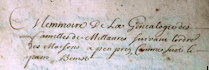 Memmoire De La Genealogie des
familles de Mettaures suivant lordre
des Maisons a peu prez Comme fait le
pere Benoist